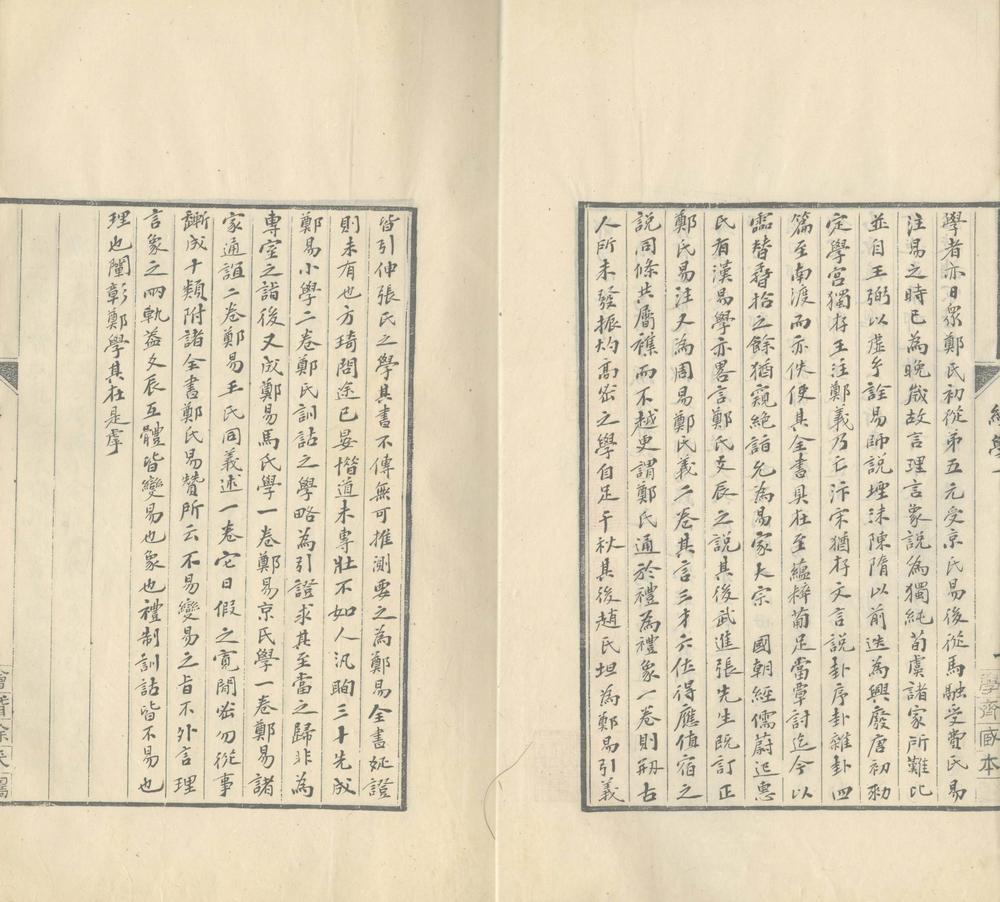 學者亦日眾鄭氏初從第五元受京氏易後從馬融受費氏易
注易之時已為晚歲故言理言象說為獨純荀虞諸家所難比
並自王弼以虛乎詮易師說堙沬陳隋以前迭為興廢唐初勑
定學宮獨存王注鄭義乃亡汴宋猶存文言說卦序卦雜卦四
篇至南渡而亦佚使其全書具在至蘊粹蔔足當覃討迄今以
霝替掇拾之餘猶窺絕詣允為易家大宗 國朝經儒蔚起惠
氏有漢易學亦畧言鄭氏爻辰之說其後武進張先生既訂正
鄭氏易注又為周易鄭氏義二卷其言三才六位得應值宿之
說同條共屬礁而不越更謂鄭氏通於禮為禮象一卷則剏古
人所未發振灼高密之學自足千秋其後趙氏坦為鄭易引義
皆引伸張氏之學其書不傳無可推測要之為鄭易全書疏證
則未有也方琦問途已晏惛道未專壯不如人汎眴三十先成
鄭易小學二卷鄭氏訓詁之學略為引證求其至當之歸非為
專室之詣後又成鄭易馬氏學一卷鄭易京氏學一卷鄭易諸
家通誼二卷鄭易王氏同義述一卷它日假之寬閒密勿從事
斷成十類附諸全書鄭氏易贊所云不易變易之旨不外言理
言象之兩軌益爻辰互體皆變易也象也禮制訓詁皆不易也
理也闡彰鄭學其在是虖
經學一